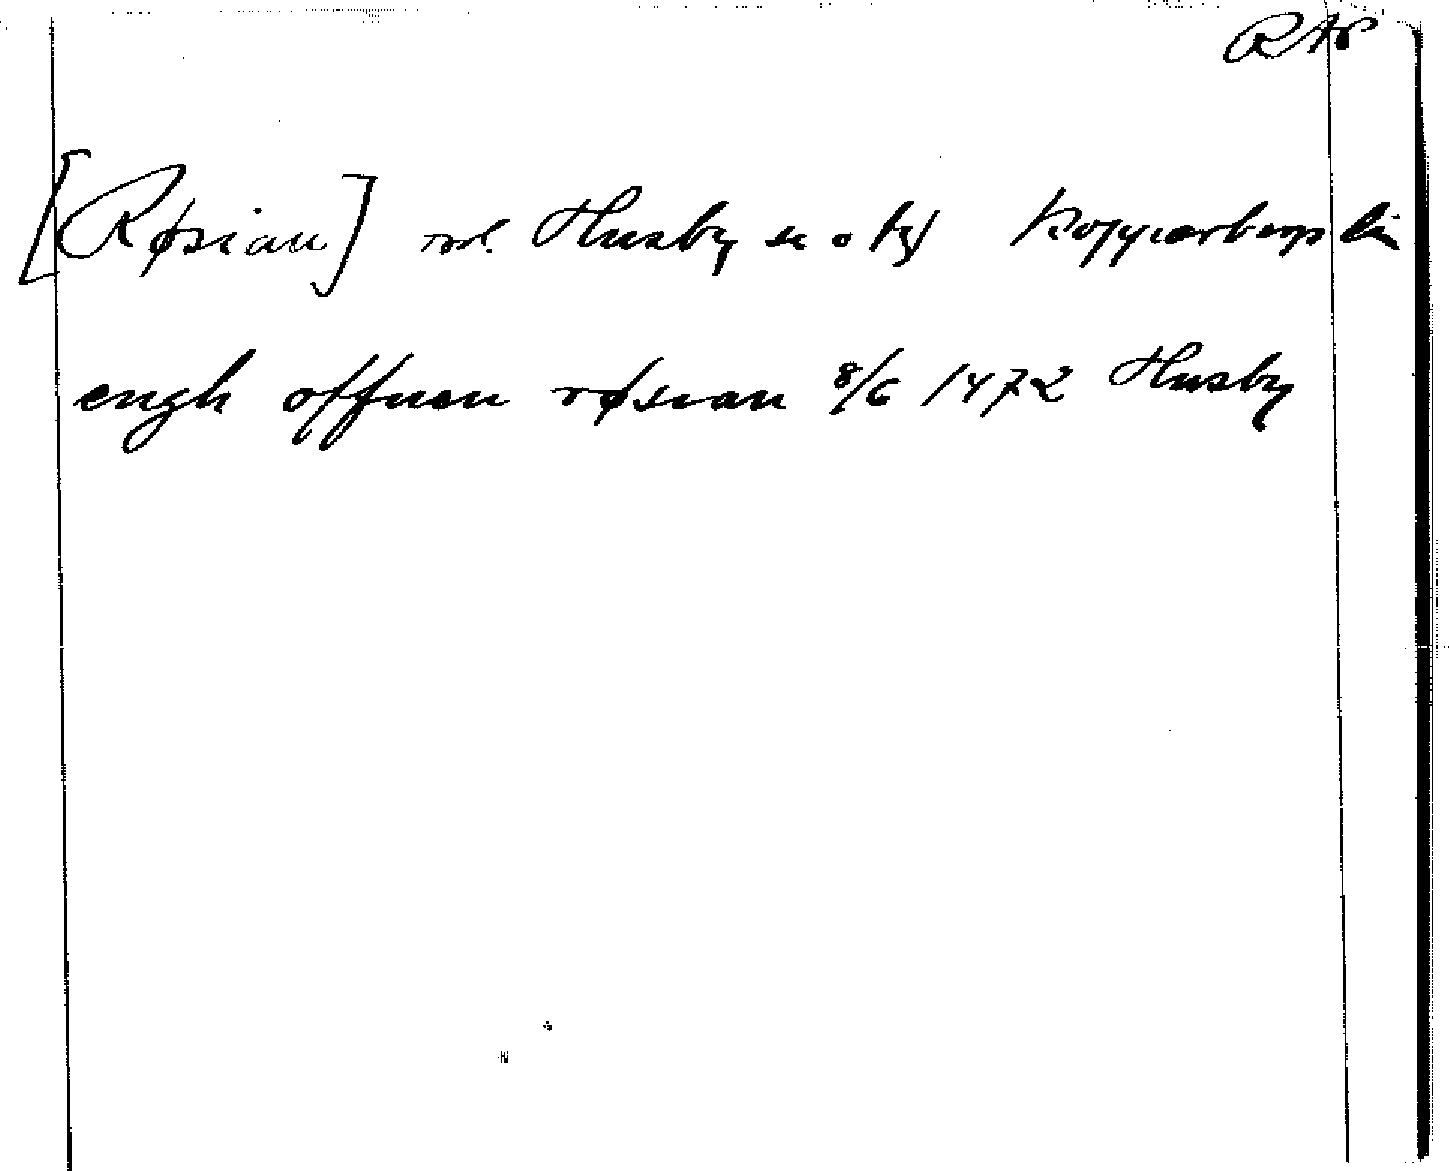 RAP
[Røsian] nL. Husby sn o hd Kopparbergs län
engh offuan røsian 8/6 1472 Husby